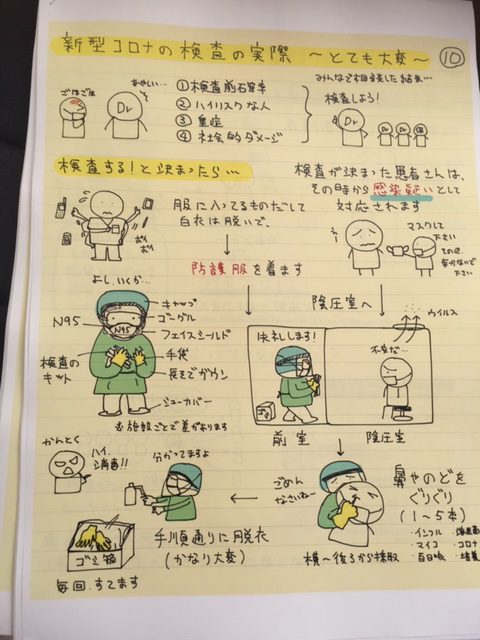 新型コロナの検査の実際 〜とても大変〜 ⑩
ごほごほ
あやしい…
Dr
①検査前確率
②ハイリスクな人
③重症
④社会的ダメージ
みんなで相談した結果…
検査しよう!
Dr
Dr Dr
検査する!と決まったら…
服に入ってるものだして
白衣は脱いで、
ポイ
ポイ
防護服を着ます
検査が決まった患者さんは、
その時から感染疑いとして
対応されます
マスクして
下さい
その辺
歩かないで
下さい
よし、いくか…
キャップ
ゴーグル
N95
N95
フェイスシールド
手袋
検査の
キット
長そでガウン
シューカバー
※施設ごとで差があります
陰圧室へ
ウイルス
失礼します!
不安だ…
前室
陰圧室
かんとく
ハイ、
消毒!!
分かってますよ
手順通りに脱衣
(かなり大変)
ゴミ箱
毎回、すてます
ごめん
なさいねー
横〜後ろから採取
鼻やのどを
ぐりぐり
(1〜5本)
・インフル
・マイコ ・コロナ
・百日咳 ・培養